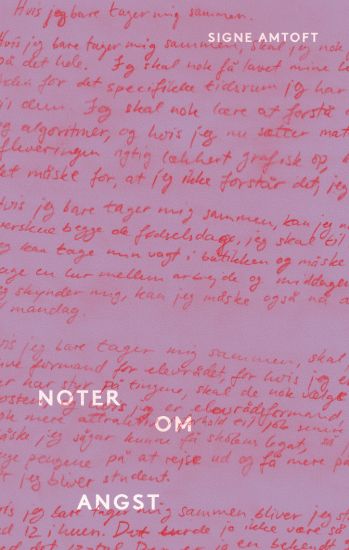 Hvis jeg bare tager mig sammen.
SIGNE AMTOFT
Hvis jeg bare tager mig sammen, skal jeg nok
på det hele. Jeg skal nok få lavet mine
for det specifikke tidsrum jeg har
dem. Jeg skal nok lære at forstå
og algoritmer, og hvis jeg nu sætter mat
afleveringen rigtig lækkert grafisk op,
det måske for, at jeg ikke forstår det, jeg
Hvis jeg bare tager mig sammen, kan jeg n
overskue begge de fødselsdage, jeg skal til
jeg kan tage min vagt i butikken og måske
tage en lur mellem arbejde og middagen
jeg skynder mig, kan jeg måske også nå
mandag.
Hvis jeg bare tager mig sammen, skal
formand for elevrådet, for hvis jeg
har styr på tingene, skal de nok vælge
NOTER
og hvis jeg er elevrådsformand,
nok mere attraktiv i forhold til job
OM
måske jeg sågar kunne få skolens legat, så
pengene på at rejse ud og få mere
jeg bliver student.
ANGST
Hvis jeg bare tager mig sammen bliver jeg
12 i huen. Det burde jo ikke være så
en